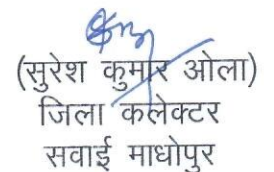 (सुरेश कुमार ओला)
जिला कलेक्टर
सवाई माधोपुर